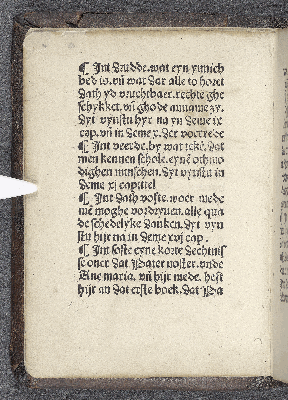 ¶ Int drudde. wat eyn ynnich
bed is. vñ wat dar alle to horet
dath yd vruchtbaer. rechte ghe
schycket. vñ ghode annamē zy.
Dyt vynstu hyr na yn deme ix
cap. vñ in deme x. Der vorrede
¶ Int veerde. by wat tekē. dat
men kennen schole. eynē othmo
dighen mynschen. dyt vynstu in
deme xj capittel
¶ Int dath voste. woer mede
mē moghe vordryuen. alle qua
de schedelyke danken. dyt vyn
stu hijr na in deme xvj cap.
¶ Int soste eyne korte dechtnis
se ouer dat Pater noster. vnde
Aue maria. vñ hijr mede. heft
hijr an dat erste boek. dat Pa